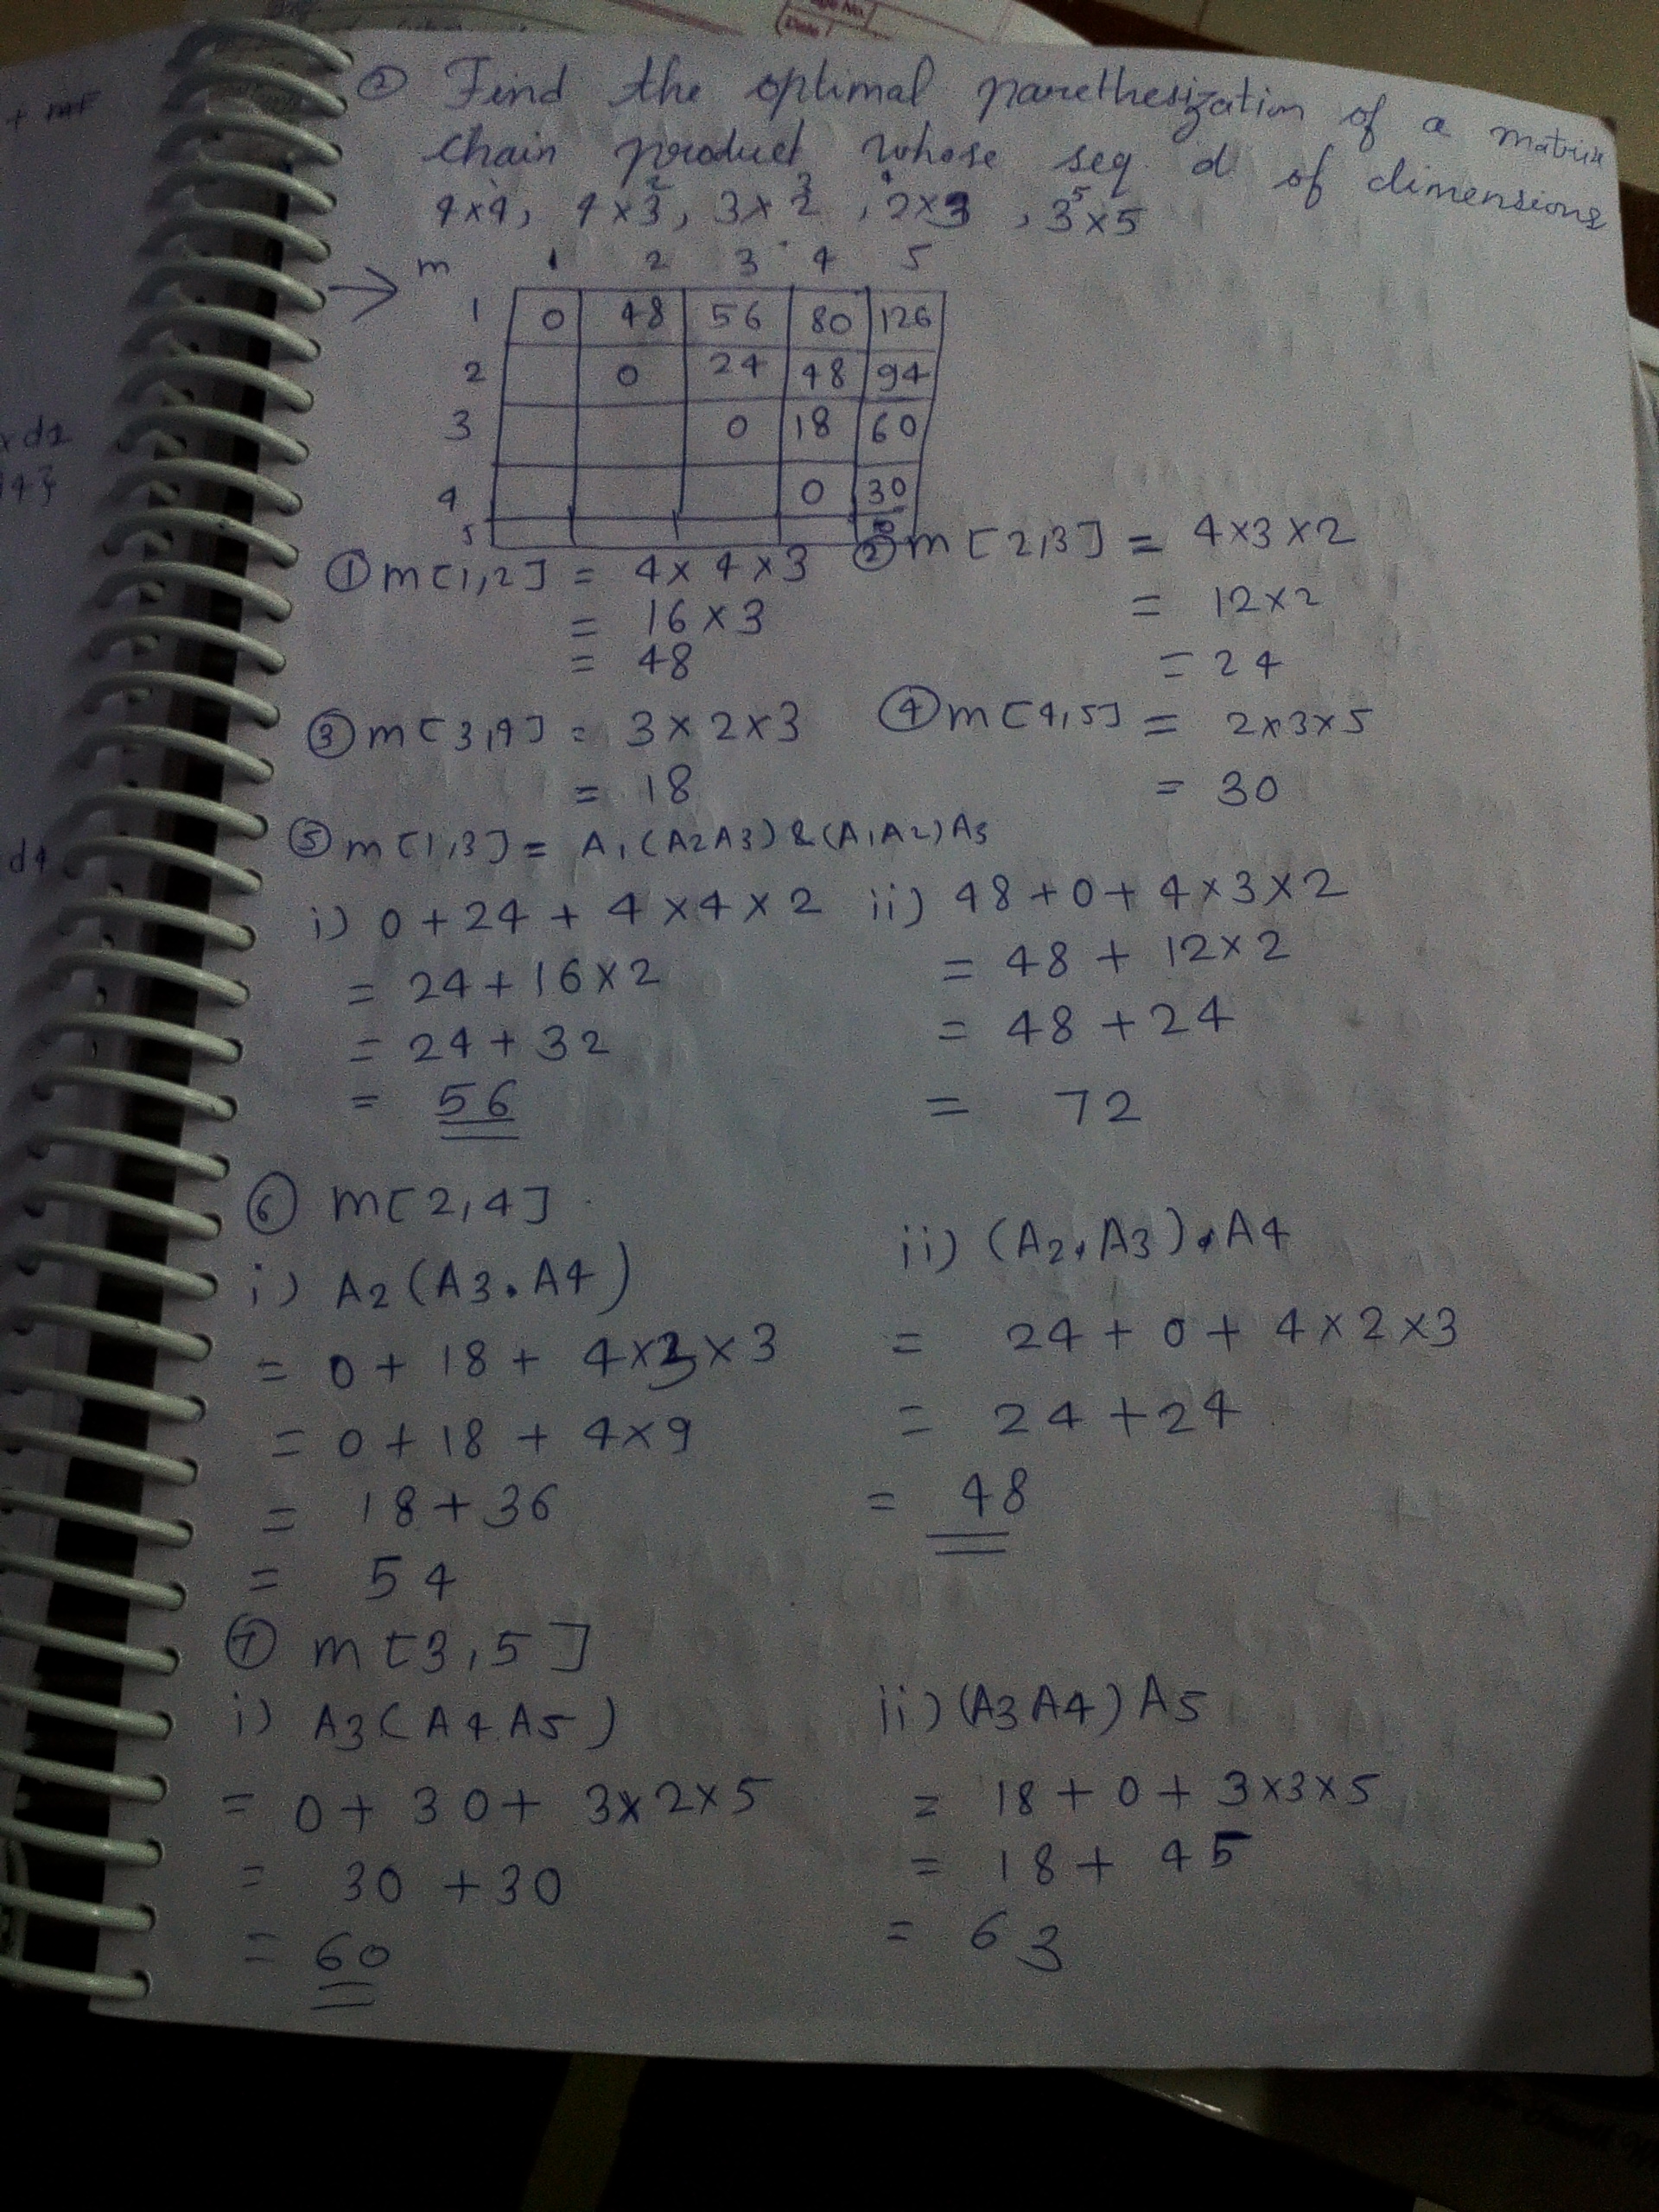 ② Find the optimal parethesization of a matrix
chain product whose seq d of dimensions
4x4, 4x3, 3x2, 2x3, 3x5
1 2 3 4 5
m 1 2 3 4 5
1 0 48 56 80 126
2 0 24 48 94
3 0 18 60
4 0 30
5 0
① m[1,2] = 4x4x3
= 16x3
= 48
② m[2,3] = 4x3x2
= 12x2
= 24
③ m[3,4] = 3x2x3
= 18
④ m[4,5] = 2x3x5
= 30
⑤ m[1,3] = A1(A2A3) & (A1A2)A3
i) 0+24+4x4x2
= 24+16x2
= 24+32
= 56
ii) 48+0+4x3x2
= 48+12x2
= 48+24
= 72
⑥ m[2,4]
i) A2(A3.A4)
= 0+18+4x3x3
= 0+18+4x9
= 18+36
= 54
ii) (A2.A3).A4
= 24+0+4x2x3
= 24+24
= 48
⑦ m[3,5]
i) A3(A4A5)
= 0+30+3x2x5
= 30+30
= 60
ii) (A3A4)A5
= 18+0+3x3x5
= 18+45
= 63